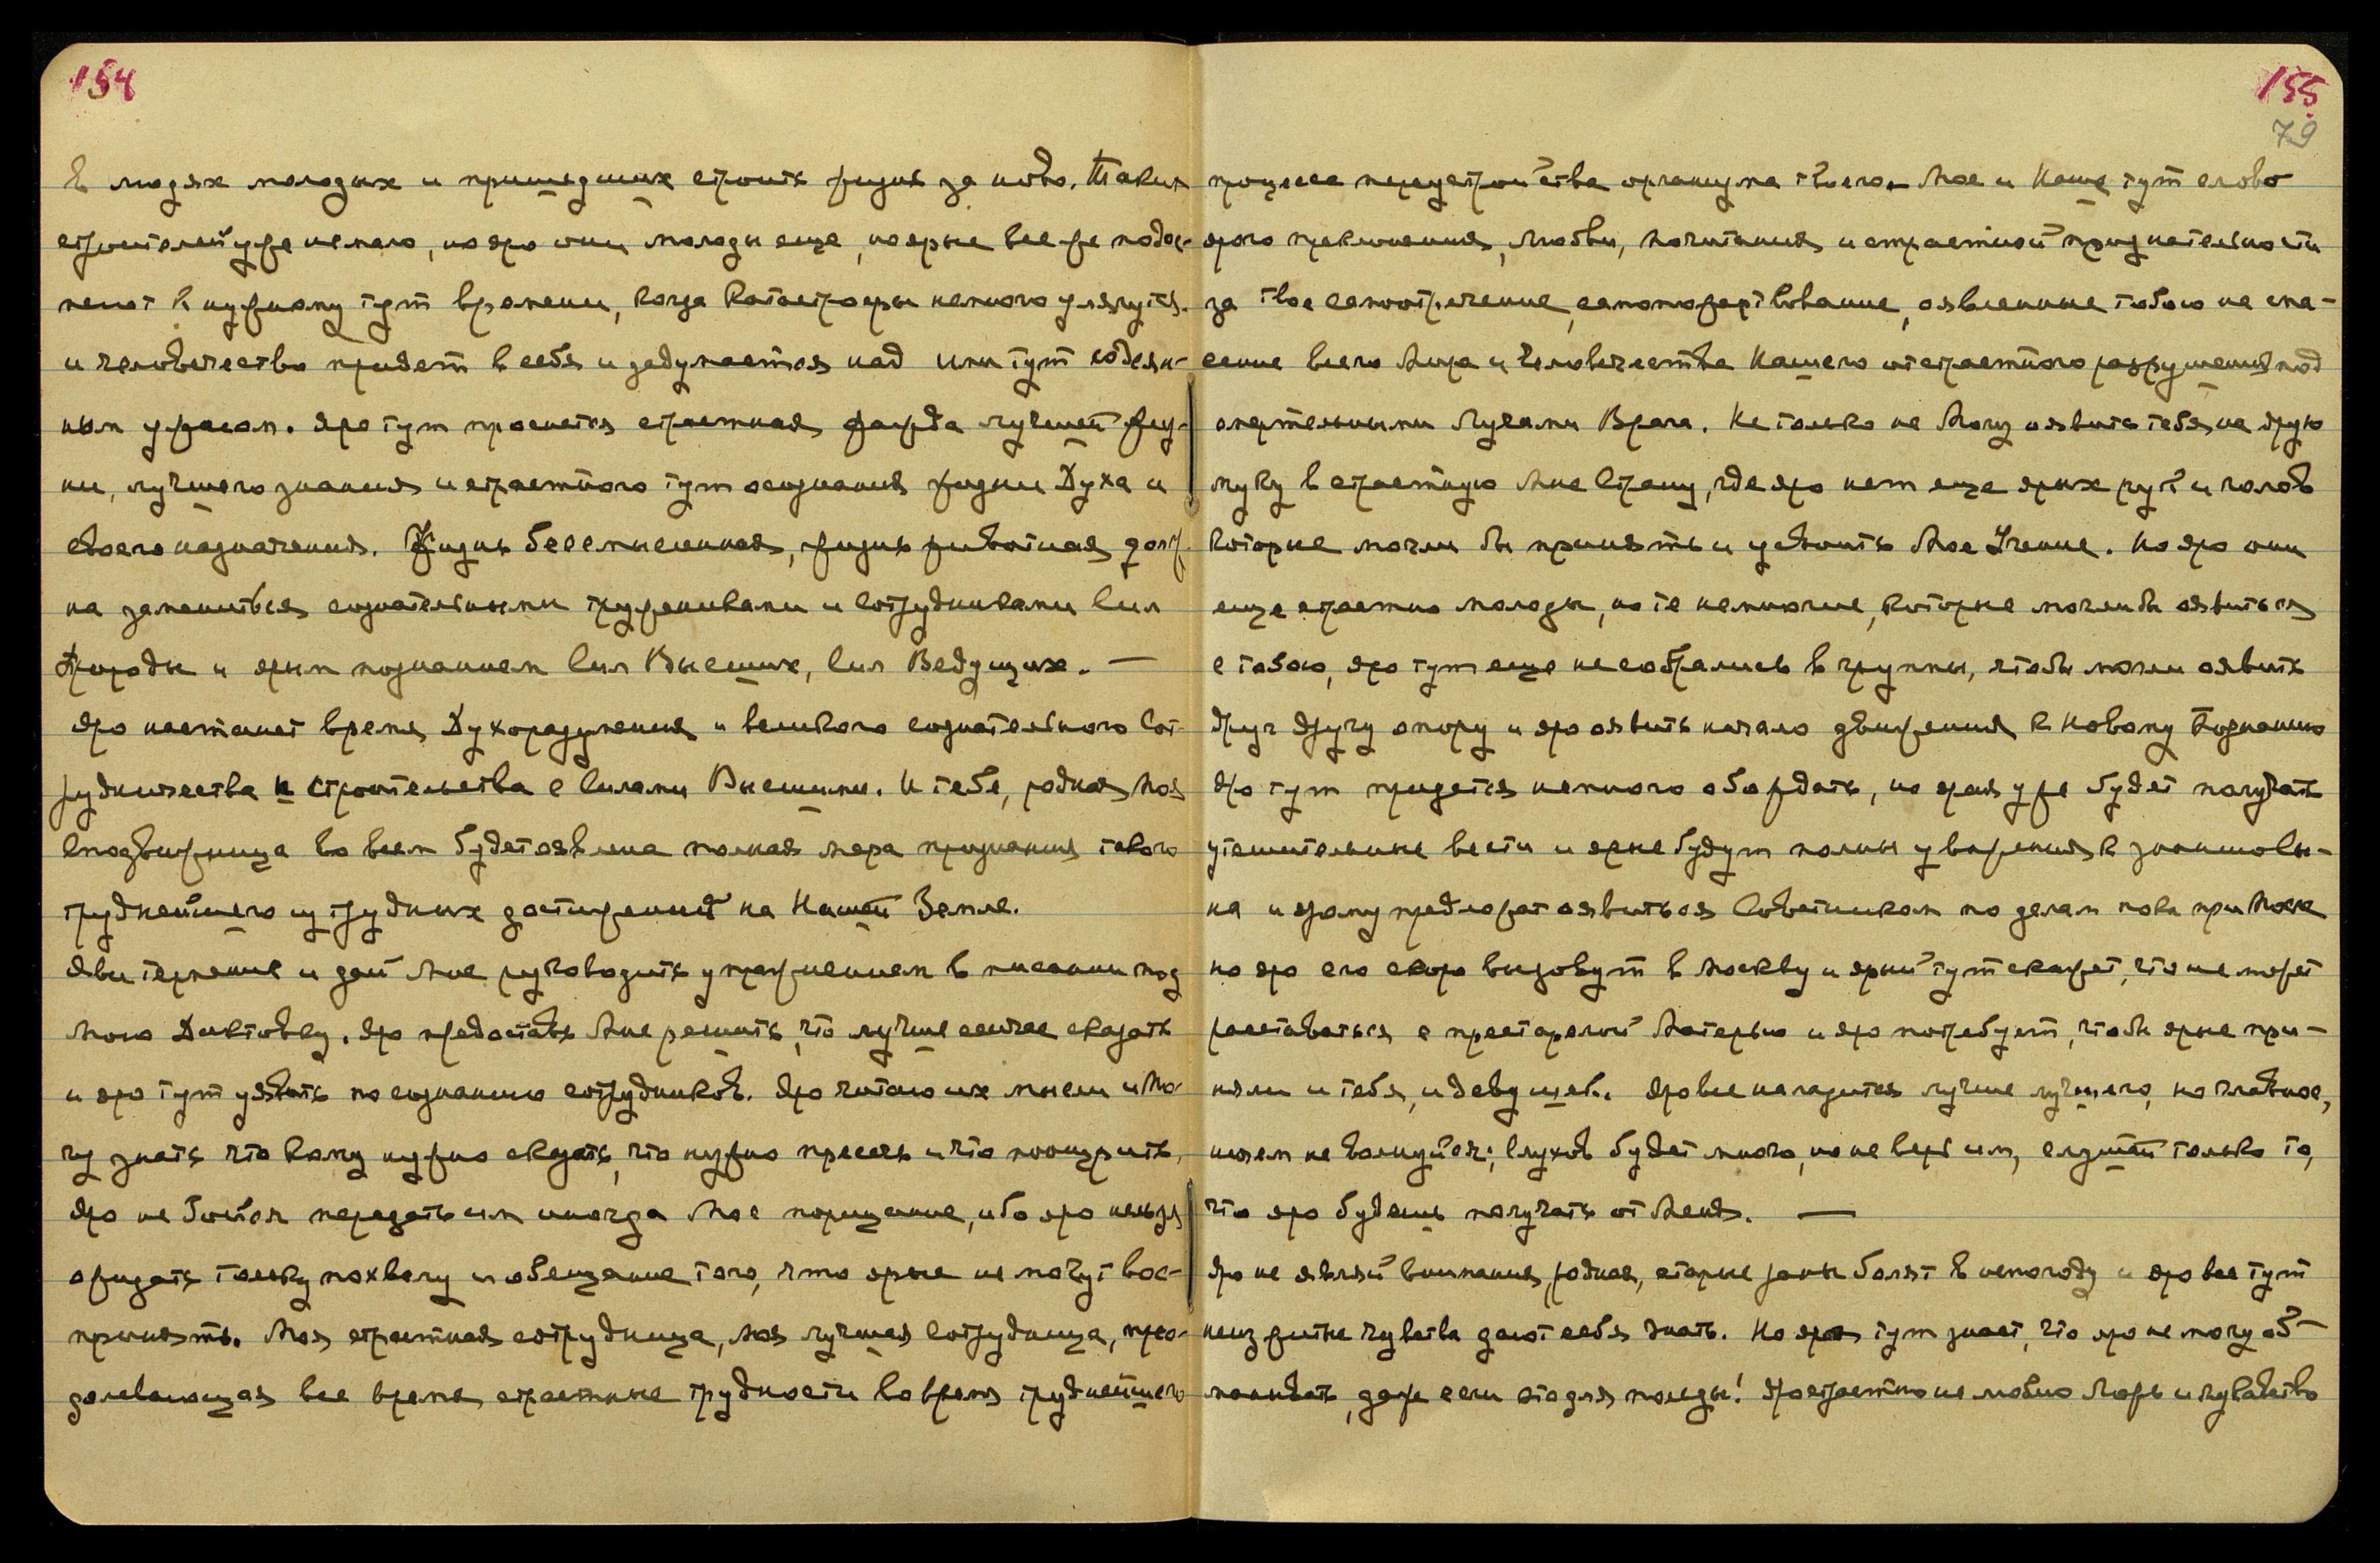 154
в людях молодых и пришедших строить жизнь за ново. Таких
строителей уже немало, но яро они молоды еще, но ярые все же подос-
пеют к нужному тут времени, когда катастрофы немного улягутся
и человечество придет в себя и задумается над ими тут содеян-
ным ужасом. Яро тут проснется страстная жажда лучшей жиз-
ни, лучшего знания и страстного тут осознания жизни Духа и
своего назначения. Жизнь бессмысленная, жизнь животная долж-
на замениться сознательными тружениками и сотрудниками сил
Природы и ярым познанием сил Высших, сил Ведущих. —
Яро настанет время Духоразумения и великого сознательного Сот-
рудничества и строительства с Силами Высшими. И тебе, родная Моя
Сподвижница во всем будет оявлена полная мера признания такого
труднейшего из трудных достижений на Нашей Земле.
Яви терпение и дай Мне руководить упражнением в писании под
Мою Диктовку. Яро предоставь Мне решить, что лучше сейчас сказать
и яро тут уявить по сознанию сотрудников. Яро читаю их мысли и Мо-
гу знать что кому нужно сказать, что нужно пресечь и что поощрить,
Яро не бойся передать им иногда Мое порицание, ибо яро нельзя
ожидать только похвалу и обещание того, что ярые не могут вос-
принять. Моя страстная сотрудница, Моя лучшая Сотрудница, прео-
долевающая все время страстные трудности во время труднейшего
155
79
процесса переустройства организма твоего. Мое и Наше тут слово
ярого преклонения, Любви, почитания и страстной признательности
за твое самоотречение, самопожертвование, оявленные тобою на спа-
сение всего Мира и Человечества Нашего от страстного разрушения под
смертельными Лучами Врага. Не только не Могу оявить тебя на ярую
муку в страстную Мне Страну, где яро нет еще ярых рук и голов
которые могли бы принять и усвоить Мое Учение. Но яро они
еще страстно молоды, но те немногие, которые могли бы оявиться
с тобою, яро тут еще не собрались в группы, чтобы могли оявить
друг другу опору и яро оявить начало движения к Новому Познанию
Яро тут придется немного обождать, но ярая уже будет получать
утешительные вести и ярые будут полны уважения к
на и ярому предложат оявиться Советником по делам пока при
но яро его скоро вызовут в Москву и ярый тут скажет, что не может
расставаться с престарелой Матерью и яро потребует, чтобы ярые при-
няли и тебя, и девушек. Яро все наладится лучше лучшего, но главное,
ничем не волнуйся; Слухов будет много, но не верь им, слушай только то,
что яро будешь получать от Меня. —
Яро не являй внимания, родная, старые раны болят в непогоду и яро все тут
неизжитые чувства дают себя знать. Но ярая тут знает, что яро не могу об-
манывать, даже если это для пользы! Яро страстно не люблю Ложь и чувство